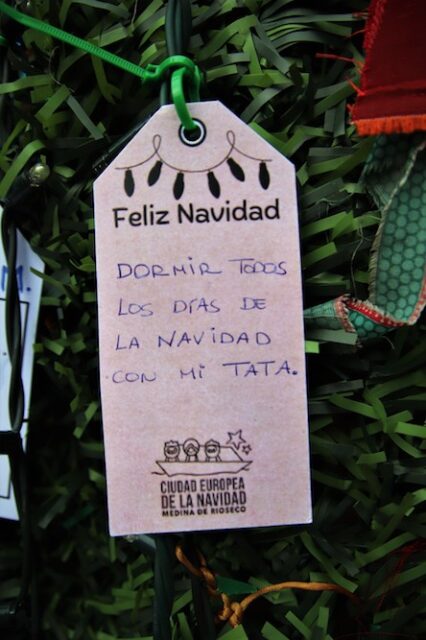 Feliz Navidad
DORMIR TODOS
LOS DÍAS DE
LA NAVIDAD
CON MI TATA.
CIUDAD EUROPEA
DE LA NAVIDAD
MEDINA DE RIOSECO
M.